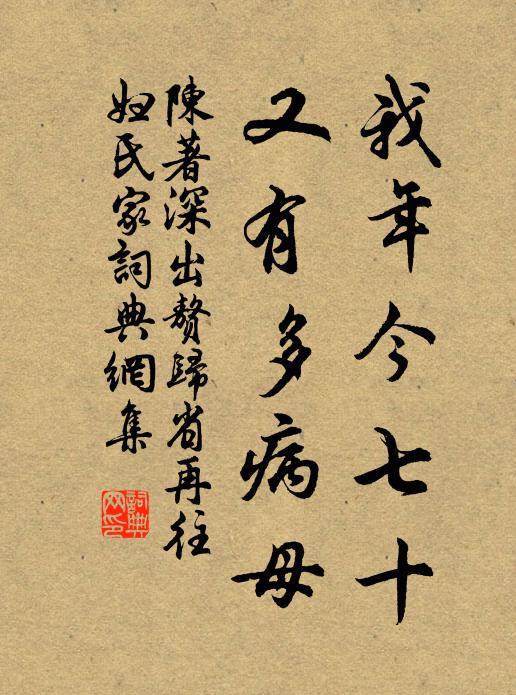 我年今七十
又有多病母
陳著深出贅歸省再往
妇氏家詞典網集
詞典網印